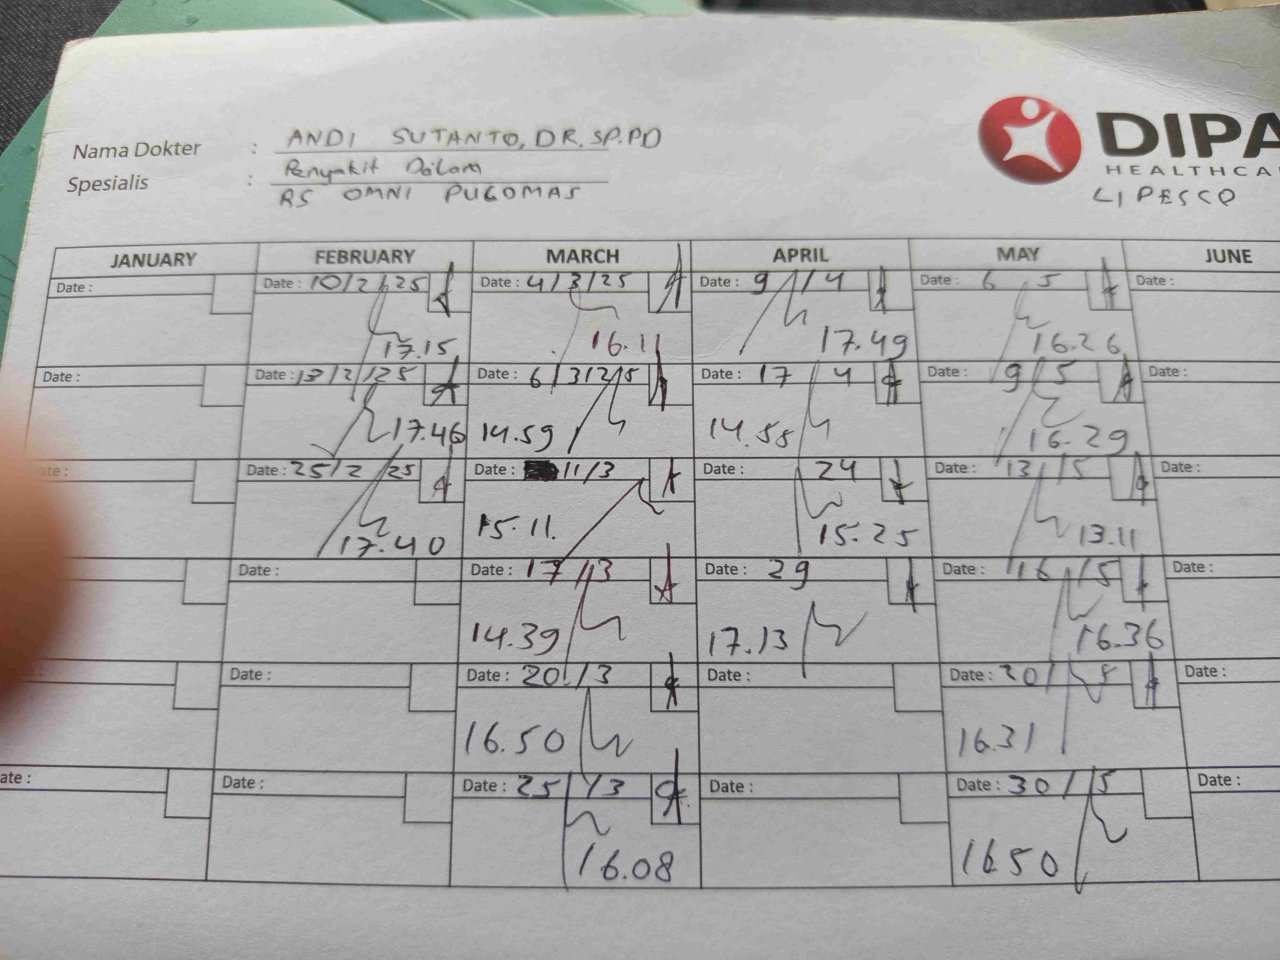 Nama Dokter : ANDI SUTANTO, DR, SP.PD
Spesialis : Penyakit Dalam
RS OMNI PULOMAS
DIPA
HEALTHCA
LIPESCO
JANUARY FEBRUARY MARCH APRIL MAY JUNE
Date : Date : 10/2/25 Date : 4/3/25 Date : 9/4 Date : 6 5 Date :
17.15 16.11 17.49 16.26
Date : Date : 13/2/25 Date : 6/3/25 Date : 17 4 Date : 9/5 Date :
17.46 14.59 14.55 16.29
te : Date : 25/2/25 Date : 11/3 Date : 24 Date : 13/5 Date :
17.40 15.11. 15.25 13.11
Date : Date : 17/3 Date : 29 Date : 16/5 Date :
14.39 17.13 16.36
Date : Date : 20/3 Date : Date : 20/5 Date :
16.50 16.31
ate : Date : Date : 25/3 Date : Date : 30/5 Date :
16.08 16.50